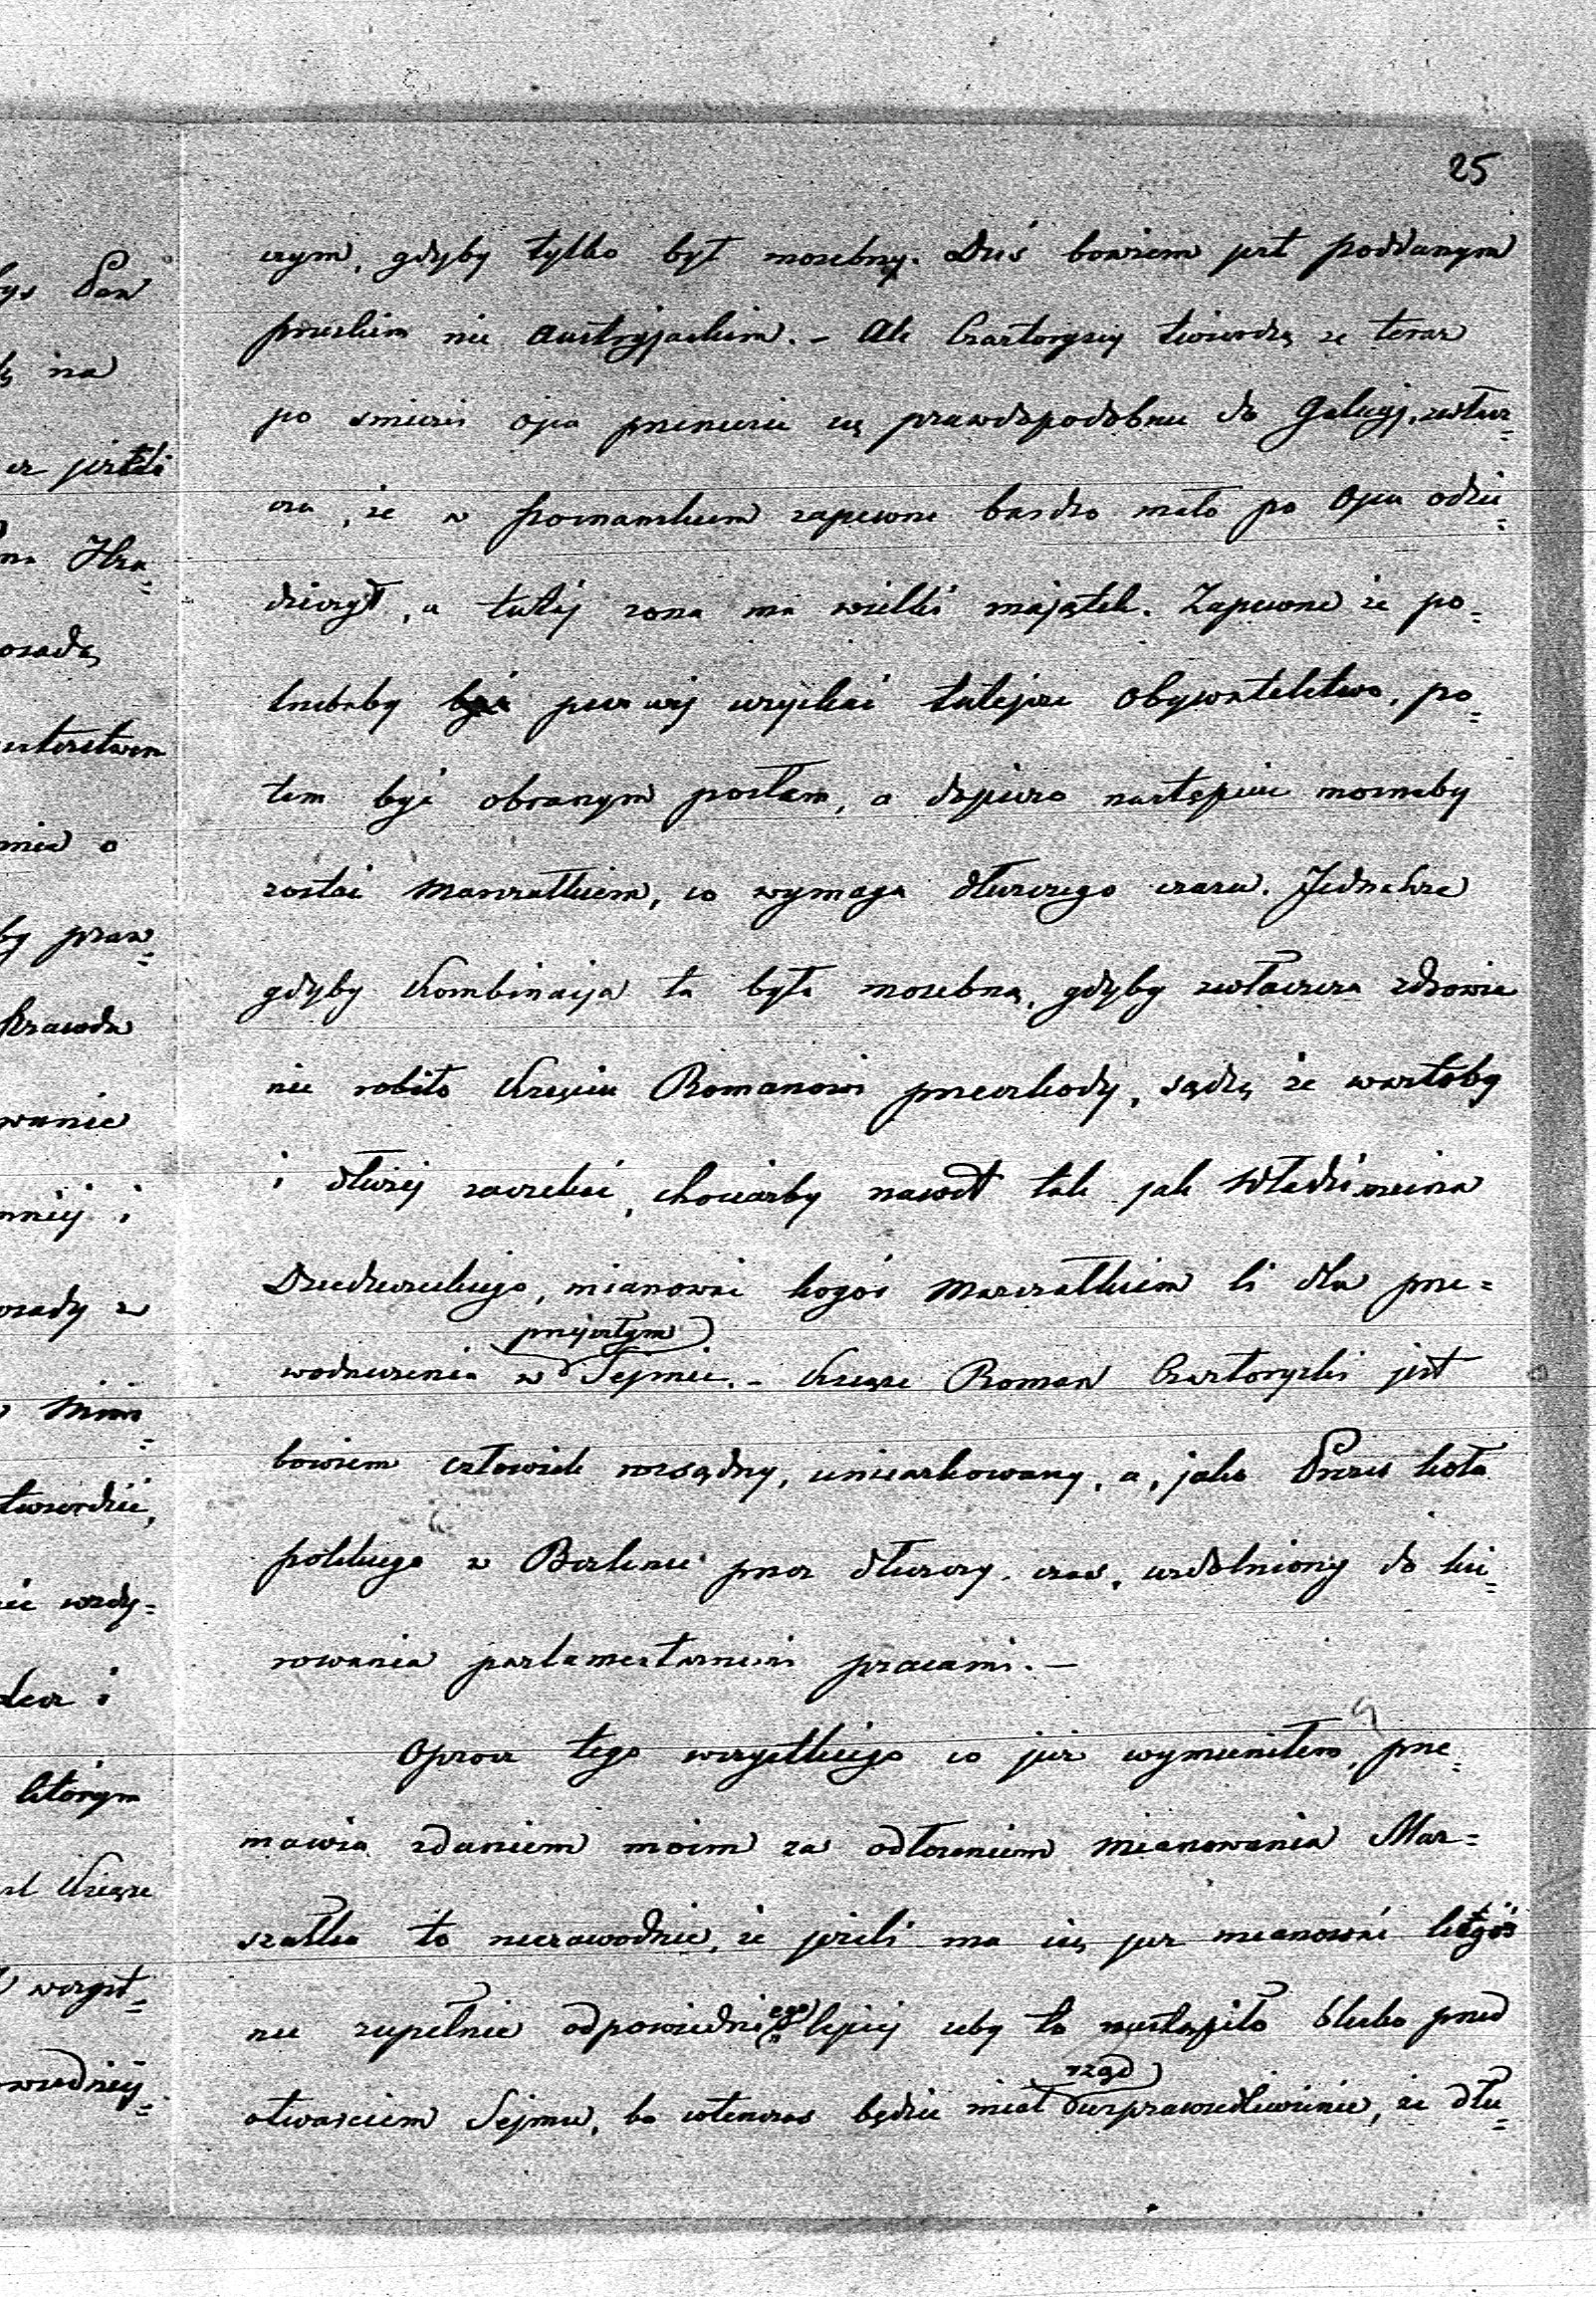 25
czym, gdyby tylko był możebny. Dziś bowiem jest poddanym
pruskim nie austryjackim. - Ale Czartoryscy twierdzą że teraz
po śmierci ojca przeniesie się prawdopodobnie do Galicyj, zwłasz=
cza, że w Poznańskiem zapewne bardzo mało po Ojcu odzie=
dziczył, a tutéj żona ma wielki majątek. Zapewne że po=
trzebaby pierwéj uzyskać tutejsze Obywatelstwo, po=
tem być obranym posłem, a dopiero następnie możnaby
zostać Marszałkiem, co wymaga dłuższego czasu. Jednakże
gdyby Kombinacija ta była możebną, gdyby zwłaszcza zdrowie
nie robiło Księciu Romanowi przeszkody, sądzę że wartoby
i dłużéj zaczekać, chociażby nawet tak jak Włodzimierza
Dzieduszyckiego, mianować kogoś Marszałkiem li dla prze=
przyszłym
wodniczenia w Sejmie. - Książe Roman Czartoryski jest
bowiem człowiek rozsądny, umiarkowany, a, jako Prezes koła
polskiego w Berlinie przez dłuższy czas, uzdolniony do kie=
rowania parlamentarnemi pracami. -
Oprócz tego wszystkiego co już wymieniłem, prze=
mawia zdaniem moim za odłożeniem mianowania Mar=
szałka to niezawodnie, że jeżeli ma się już mianować kogoś
nie zupełnie odpowiedniego lepiéj żeby to nastąpiło blisko przed
rząd
otwarciem Sejmu, bo wtenczas będzie miał usprawiedliwienie, że dłu=
ys Pan
na
er jeżeli
na Hra=
osadę
nia o
by praw=
Prawda
wanie
nniéj i
osady w
Mini=
twierdzić,
którym
Książe
wszyst=